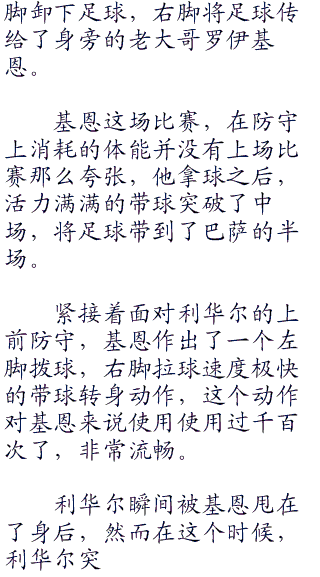 脚卸下足球，右脚将足球传
给了身旁的老大哥罗伊基
恩。
基恩这场比赛，在防守
上消耗的体能并没有上场比
赛那么夸张，他拿球之后，
活力满满的带球突破了中
场，将足球带到了巴萨的半
场。
紧接着面对利华尔的上
前防守，基恩作出了一个左
脚拨球，右脚拉球速度极快
的带球转身动作，这个动作
对基恩来说使用使用过千百
次了，非常流畅。
利华尔瞬间被基恩甩在
了身后，然而在这个时候，
利华尔突